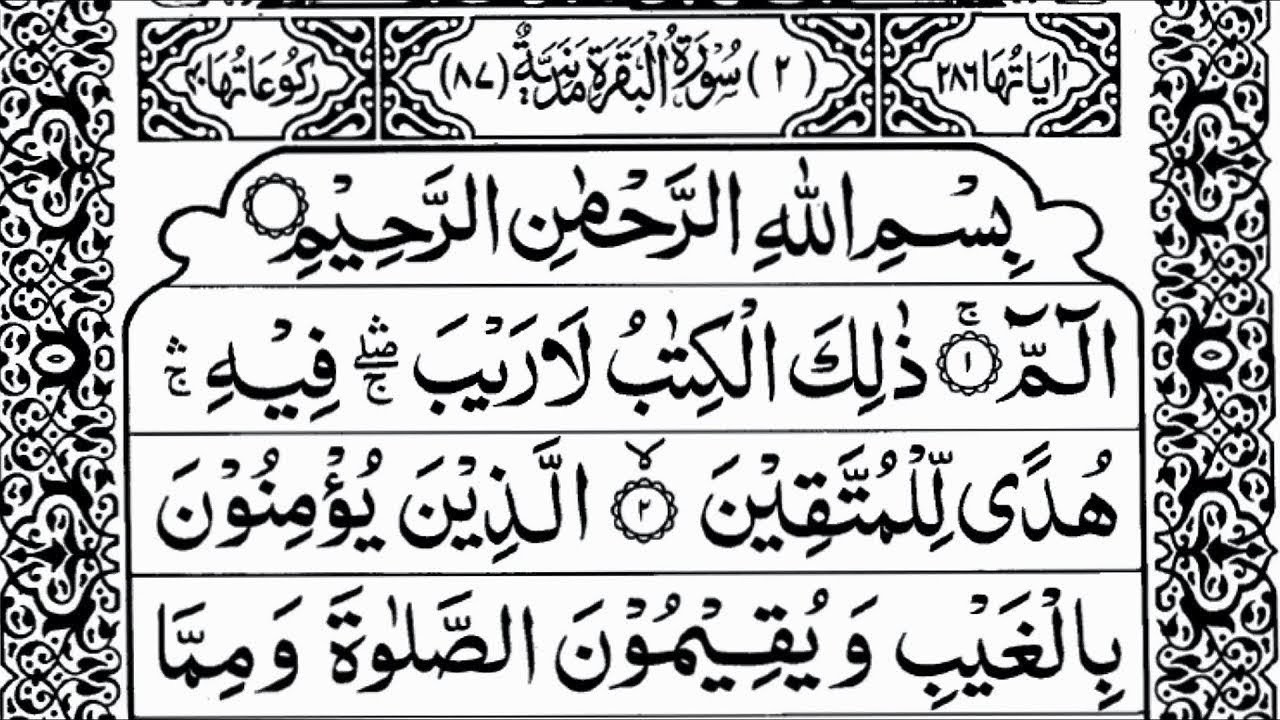 اٰيَاتُهَا ٢٨٦ (٢) سُوْرَةُ الْبَقَرَةِ مَدَنِيَّةٌ (٨٧) رُكُوْعَاتُهَا ٤٠
بِسْمِ اللّٰهِ الرَّحْمٰنِ الرَّحِيْمِ
الٓمّٓ ۚ ١ ذٰلِكَ الْكِتٰبُ لَا رَيْبَ ۛ ۖ ۚ فِيْهِ ۛ ۚ
هُدًى لِّلْمُتَّقِيْنَ ۙ ٢ الَّذِيْنَ يُؤْمِنُوْنَ
بِالْغَيْبِ وَ يُقِيْمُوْنَ الصَّلٰوةَ وَ مِمَّا